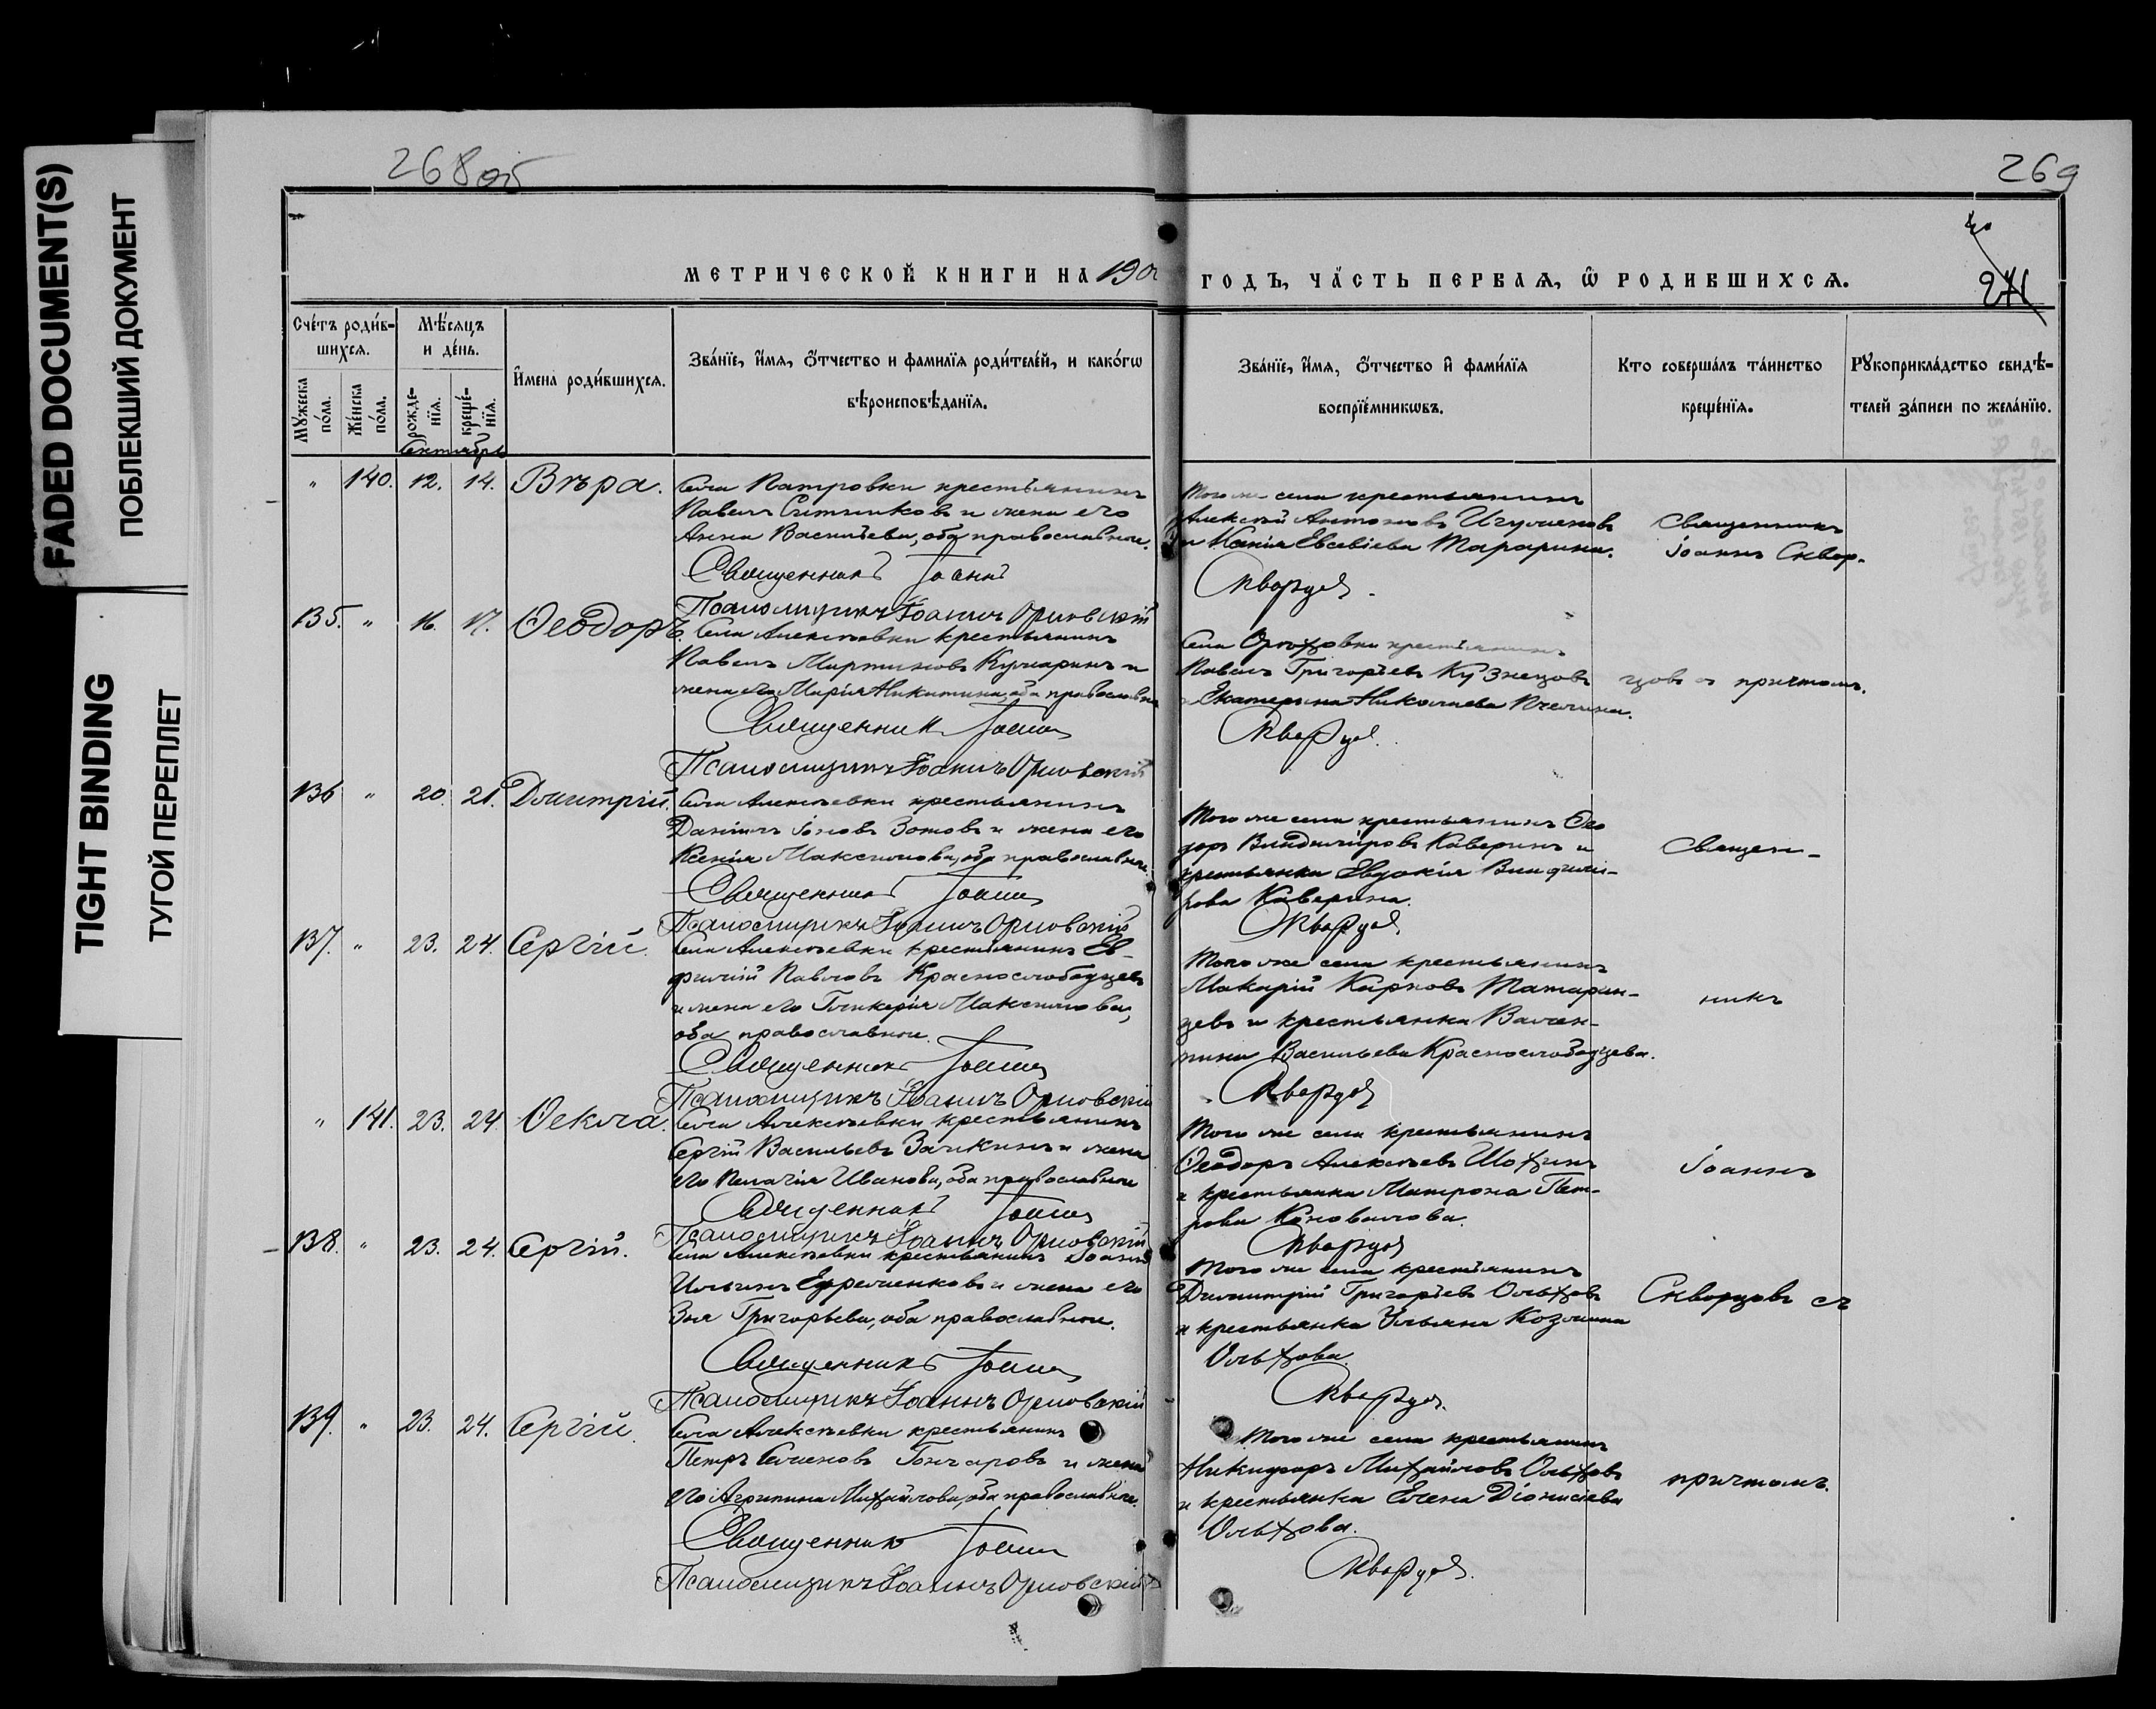 FADED DOCUMENT(S)
ПОБЛЕКШИЙ ДОКУМЕНТ
TIGHT BINDING
ТУГОЙ ПЕРЕПЛЕТ
268об
269
271
МЕТРИЧЕСКОЙ КНИГИ НА 190
ГОДЪ, ЧАСТЬ ПЕРВАѦ, Ѿ РОДИВШИХСѦ.
Счétъ роди́в-
шихсѧ.
Мꙋ́жеска по́ла.
Же́нска по́ла.
Мѣ́сѧцъ
и де́нь.
рожде́нїѧ.
креще́нїѧ.
И҆мена роди́вшихсѧ.
Зва́нїе, и҆́мѧ, ѻ҆́тчество и фами́лїѧ роди́телей, и како́гѡ
вѣроисповѣ́данїѧ.
Зва́нїе, и҆́мѧ, ѻ҆́тчество и҆ фами́лїѧ
воспрїе́мникѡвъ.
Кто соверша́лъ та́инство
креще́нїѧ.
Рꙋкоприкла́дство свидѣ́-
телей за́писи по жела́нїю.
Сентябрь
" 140. 12. 14. Вѣра.
Села Патровки крестьянинъ
Павелъ Ситниковъ и жена его
Анна Васильева, оба православные.
Священникъ Іоаннъ
Скворцовъ
Псаломщикъ Іоаннъ Орловскій
Того же села крестьянинъ
Алексѣй Антоновъ Игуменовъ
и Ксенія Евсевіева Тарарина.
Священникъ
Іоаннъ Сквор-
135. " 16. 17. Ѳеодоръ.
Села Алексѣевки крестьянинъ
Павелъ Мартиновъ Кумаринъ и
жена его Марія Никитина, оба православные
Священникъ Іоаннъ
Скворцовъ
Псаломщикъ Іоаннъ Орловскій
Села Орѣховки крестьянинъ
Павелъ Григорьевъ Кузнецовъ
и Екатерина Николаева Пчелина.
цовъ съ причтомъ.
136 " 20. 21. Димитрій.
Села Алексѣевки крестьянинъ
Даніилъ Іоновъ Зотовъ и жена его
Ксенія Максимова, оба православные.
Священникъ Іоаннъ
Скворцовъ
Псаломщикъ Іоаннъ Орловскій
Того же села крестьянинъ Ѳео
доръ Владиміровъ Каверинъ и
крестьянка Евдокія Владимі-
рова Каверина.
Священ-
137. " 23. 24. Сергій.
Села Алексѣевки крестьянинъ Ев-
фимій Павловъ Краснослободцевъ
и жена его Гликерія Максимова,
оба православные.
Священникъ Іоаннъ
Скворцовъ
Псаломщикъ Іоаннъ Орловскій
Того же села крестьянинъ
Макарій Карповъ Татарин-
цевъ и крестьянка Вален-
тина Васильева Краснослободцева.
никъ
" 141. 23. 24. Ѳекла.
Села Алексѣевки крестьянинъ
Сергій Васильевъ Заикинъ и жена
его Пелагія Иванова, оба православные
Священникъ Іоаннъ
Скворцовъ
Псаломщикъ Іоаннъ Орловскій
Того же села крестьянинъ
Ѳеодоръ Алексѣевъ Шохинъ
и крестьянка Матрона Пет-
рова Коновалова.
Іоаннъ
138. " 23. 24. Сергій.
Села Алексѣевки крестьянинъ Іоаннъ
Ильинъ Ефременковъ и жена его
Зоя Григорьева, оба православные.
Священникъ Іоаннъ
Скворцовъ
Псаломщикъ Іоаннъ Орловскій
Того же села крестьянинъ
Димитрій Григорьевъ Ольховъ
и крестьянка Ульяна Козмина
Ольхова.
Скворцовъ съ
139. " 23. 24. Сергій.
Села Алексѣевки крестьянинъ
Петръ Семеновъ Гончаровъ и жена
его Агрипина Михайлова, оба православные.
Священникъ Іоаннъ
Скворцовъ
Псаломщикъ Іоаннъ Орловскій
Того же села крестьянинъ
Никифоръ Михайловъ Ольховъ
и крестьянка Елена Діонисіева
Ольхова.
причтомъ.